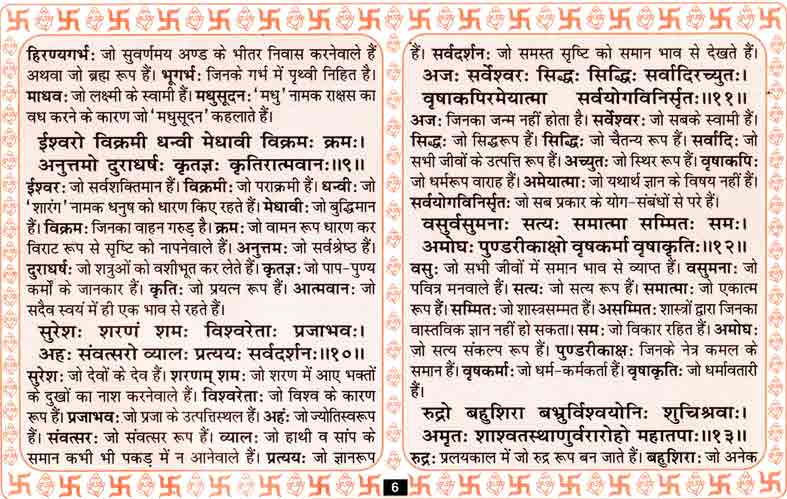 हिरण्यगर्भः जो सुवर्णमय अण्ड के भीतर निवास करनेवाले हैं
अथवा जो ब्रह्म रूप हैं। भूगर्भः जिनके गर्भ में पृथ्वी निहित है।
माधवः जो लक्ष्मी के स्वामी हैं। मधुसूदनः 'मधु' नामक राक्षस का
वध करने के कारण जो 'मधुसूदन' कहलाते हैं।
ईश्वरो विक्रमी धन्वी मेधावी विक्रमः क्रमः।
अनुत्तमो दुराधर्षः कृतज्ञः कृतिरात्मवानः॥९॥
ईश्वरः जो सर्वशक्तिमान हैं। विक्रमीः जो पराक्रमी हैं। धन्वीः जो
'शारंग' नामक धनुष को धारण किए रहते हैं। मेधावीः जो बुद्धिमान
हैं। विक्रमः जिनका वाहन गरुड़ है। क्रमः जो वामन रूप धारण कर
विराट रूप से सृष्टि को नापनेवाले हैं। अनुत्तमः जो सर्वश्रेष्ठ हैं।
दुराधर्षः जो शत्रुओं को वशीभूत कर लेते हैं। कृतज्ञः जो पाप-पुण्य
कर्मों के जानकार हैं। कृतिः जो प्रयत्न रूप हैं। आत्मवानः जो
सदैव स्वयं में ही एक भाव से रहते हैं।
सुरेशः शरणं शमः विश्वरेताः प्रजाभवः।
अहः संवत्सरो व्यालः प्रत्ययः सर्वदर्शनः॥१०॥
सुरेशः जो देवों के देव हैं। शरणम् शमः जो शरण में आए भक्तों
के दुखों का नाश करनेवाले हैं। विश्वरेताः जो विश्व के कारण
रूप हैं। प्रजाभवः जो प्रजा के उत्पत्तिस्थल हैं। अहंः जो ज्योतिस्वरूप
हैं। संवत्सरः जो संवत्सर रूप हैं। व्यालः जो हाथी व सांप के
समान कभी भी पकड़ में न आनेवाले हैं। प्रत्ययः जो ज्ञानरूप
हैं। सर्वदर्शनः जो समस्त सृष्टि को समान भाव से देखते हैं।
अजः सर्वेश्वरः सिद्धः सिद्धिः सर्वादिरच्युतः।
वृषाकपिरमेयात्मा सर्वयोगविनिर्सृतः॥११॥
अजः जिनका जन्म नहीं होता है। सर्वेश्वरः जो सबके स्वामी हैं।
सिद्धः जो सिद्धरूप हैं। सिद्धिः जो चैतन्य रूप हैं। सर्वादिः जो
सभी जीवों के उत्पत्ति रूप हैं। अच्युतः जो स्थिर रूप हैं। वृषाकपिः
जो धर्मरूप वाराह हैं। अमेयात्माः जो यथार्थ ज्ञान के विषय नहीं हैं।
सर्वयोगविनिर्सृतः जो सब प्रकार के योग-संबंधों से परे हैं।
वसुर्वसुमनाः सत्यः समात्मा सम्मितः समः।
अमोघः पुण्डरीकाक्षो वृषकर्मा वृषाकृतिः॥१२॥
वसुः जो सभी जीवों में समान भाव से व्याप्त हैं। वसुमनाः जो
पवित्र मनवाले हैं। सत्यः जो सत्य रूप हैं। समात्माः जो एकात्म
रूप हैं। सम्मितः जो शास्त्रसम्मत हैं। असम्मितः शास्त्रों द्वारा जिनका
वास्तविक ज्ञान नहीं हो सकता। समः जो विकार रहित हैं। अमोघः
जो सत्य संकल्प रूप हैं। पुण्डरीकाक्षः जिनके नेत्र कमल के
समान हैं। वृषकर्माः जो धर्म-कर्मकर्ता हैं। वृषाकृतिः जो धर्मावतारी
हैं।
रुद्रो बहुशिरा बभ्रुर्विश्वयोनिः शुचिश्रवाः।
अमृतः शाश्वतस्थाणुर्वरारोहो महातपाः॥१३॥
रुद्रः प्रलयकाल में जो रुद्र रूप बन जाते हैं। बहुशिराः जो अनेक
6